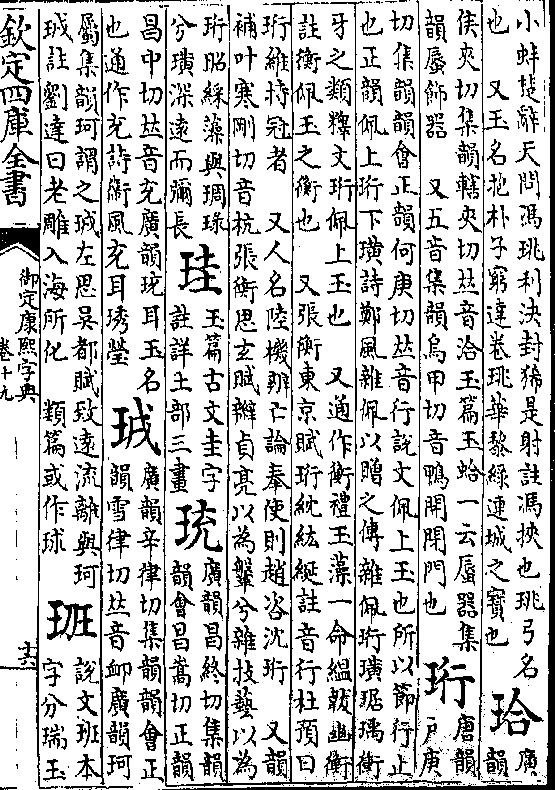 小蚌楚辭天問馮珧利決封豨是射註馮挾也珧弓名
也 又玉名抱朴子窮達卷珧華黎綠連城之寶也
珨
廣
韻
侯夾切集韻轄夾切𠀤音洽玉篇玉蛤一云蜃器集
韻蜃飾器 又五音集韻烏甲切音鴨開閉門也
珩
唐韻
戶庚
切集韻韻會正韻何庚切𠀤音行說文佩上玉也所以節行止
也正韻佩上珩下璜詩鄭風雜佩以贈之傳雜佩珩璜琚瑀衝
牙之類釋文珩佩上玉也 又通作衡禮玉藻一命縕韍幽衡
註衡佩玉之衡也 又張衡東京賦珩紞紘綖註音行杜預曰
珩維持冠者 又人名陸機辨亡論奉使則趙咨沈珩 又韻
補叶寒剛切音杭張衡思玄賦辮貞亮以為鞶兮雜技藝以為
珩昭綵藻與琱琭
兮璜深遠而彌長
珪
玉篇古文圭字
註詳土部三畫
珫
廣韻昌終切集韻
韻會昌嵩切正韻
昌中切𠀤音充廣韻珫耳玉名
也通作充詩衛風充耳琇瑩
珬
廣韻辛律切集韻韻會正
韻雪律切𠀤音卹廣韻珂
屬集韻珂謂之珬左思吳都賦致遠流離與珂
珬註劉逵曰老雕入海所化 類篇或作球
班
說文班本
字分瑞玉
欽定四庫全書
御定康熙字典
卷十九
十六